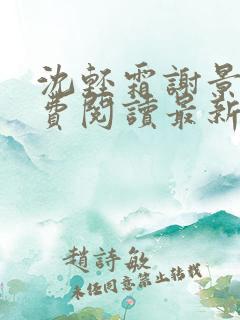 沈輕霜謝景
費閱讀最新
趙詩敏
未經同意禁止轉載